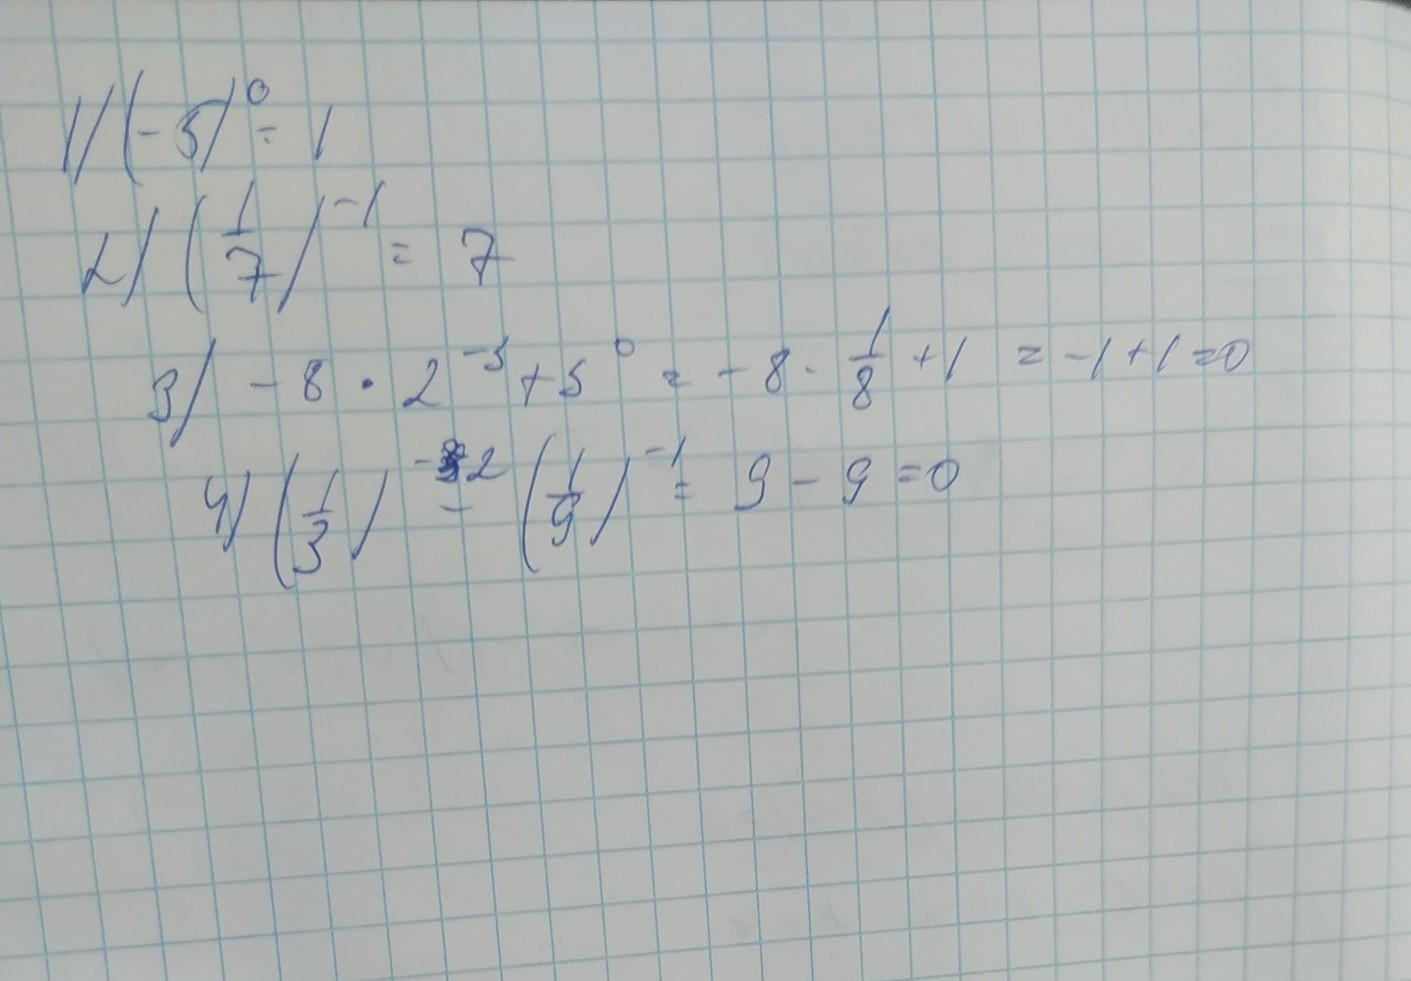 1) (-5)⁰ = 1
2) (1/7)⁻¹ = 7
3) -8 · 2⁻³ + 5⁰ = -8 · 1/8 + 1 = -1 + 1 = 0
4) (1/3)⁻² - (1/9)⁻¹ = 9 - 9 = 0